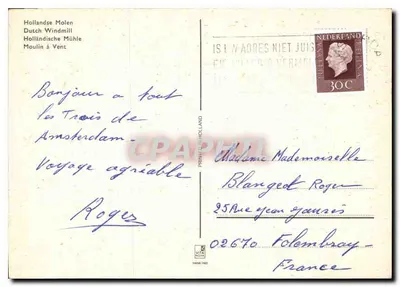 Hollandse Molen
Dutch Windmill
Holländische Mühle
Moulin à Vent
IS EN ADRES NIET JUIS
NEDERLAND
30 C
Bonjour a tout
les Trois de
Amsterdam-
Voyage agréable
Roger
CPAPHIL
Madame Mademoiselle
Blangeot Roger
25 Rue Jean Jaurès
02670 Folembray-
France